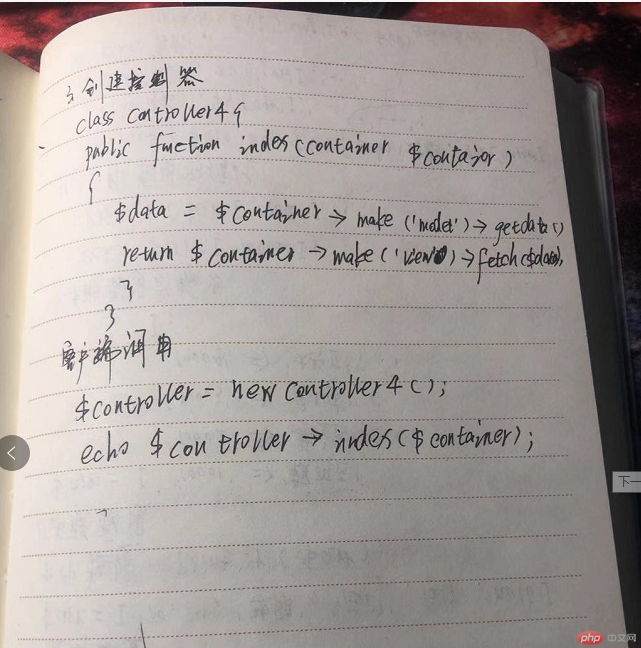 3 创建控制器
class Controller4{
public function index(Container $container)
{
$data = $container → make('model') → getdata()
return $container → make('view') → fetch($data);
}
}
客户端调用
$controller = new Controller4();
echo $controller → index($container);
下一
php 中文网